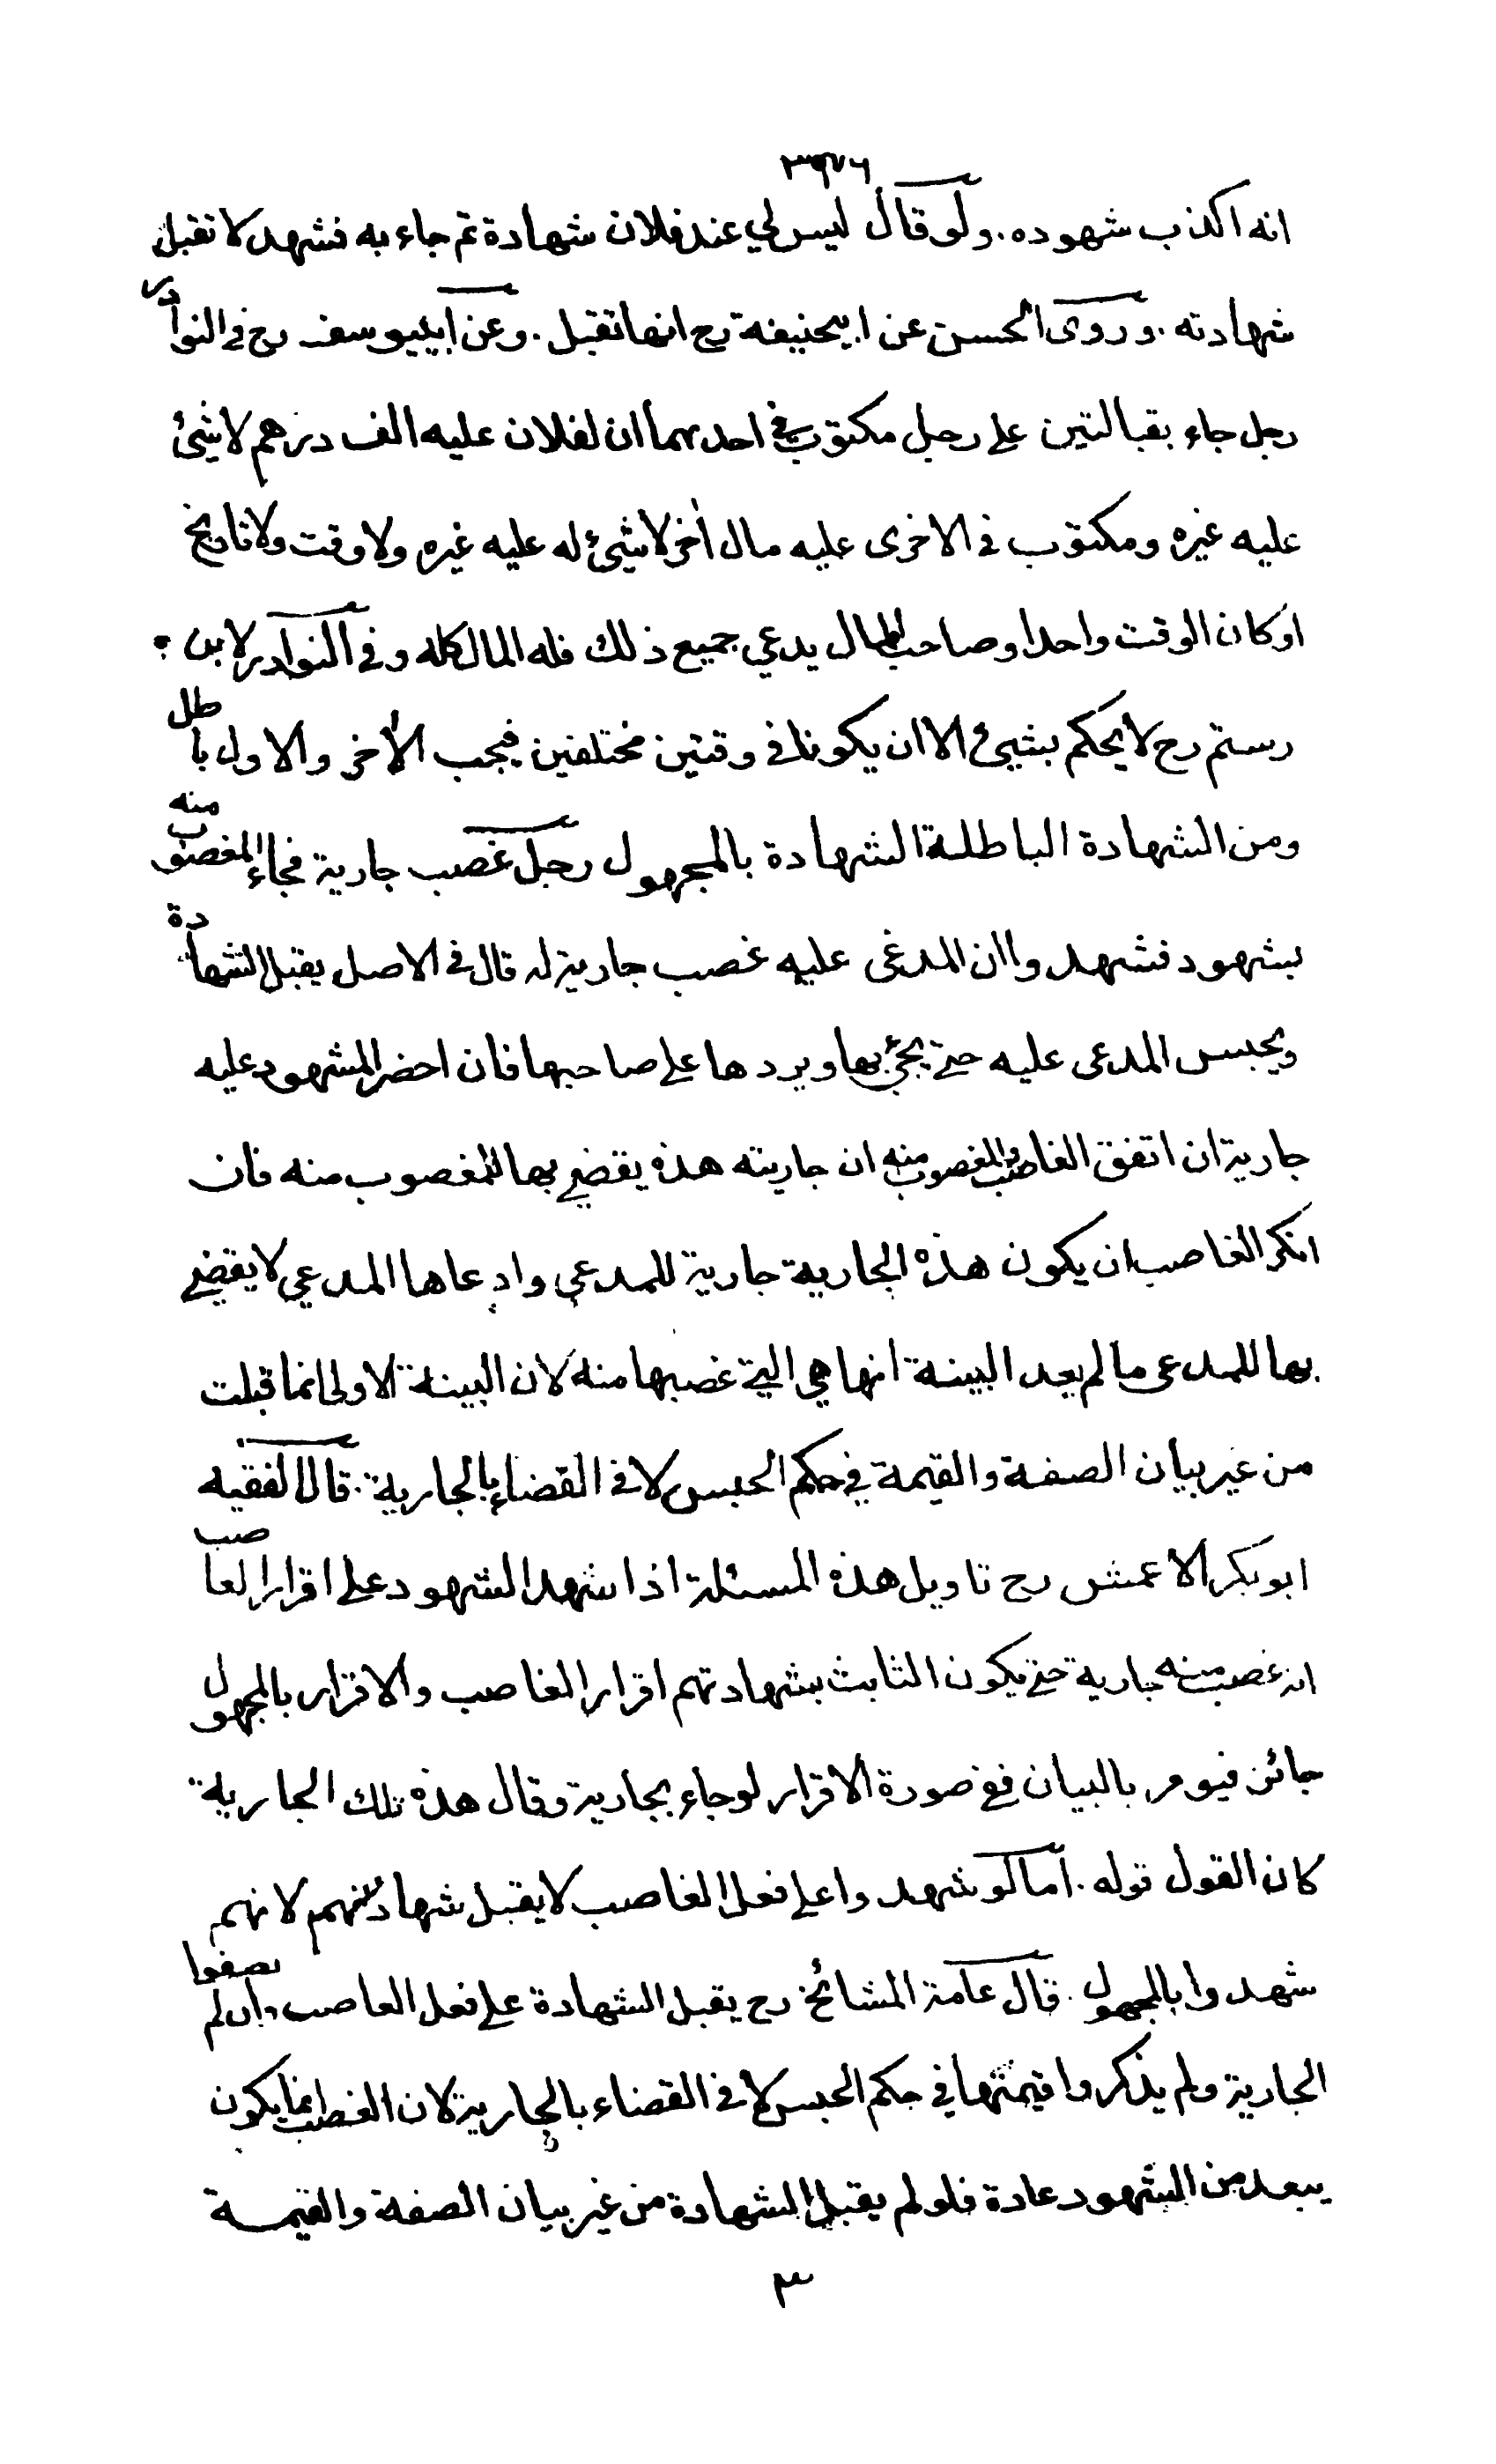 انه اكذب شهوده . ولو قال ليس لي عند فلان شهادة ثم جاء به فشهد لا تقبل
شهادته . وروى الحسن عن ابيحنيفة رح انها تقبل . وعن ابييوسف رح في النوادر
رجل جاء بقبالتين على رجل مكتوب في احدىهما ان لفلان عليه الف درهم لا شيئ
عليه غيره ومكتوب في الاخرى عليه مال أخر لا شيئ له عليه غيره ولا وقت ولا تاريخ
او كان الوقت واحدا وصاحب المال يدعي جميع ذلك فله المال كله وفي النوادر لابن
رستم رح لا يحكم بشيئ الا ان يكونا في وقتين مختلفين فيجب الأخر والاول باطل
ومن الشهادة الباطلة الشهادة بالمجهول رجل غصب جارية فجاء المغصوب منه
بشهود فشهدوا ان المدعى عليه غصب جارية له قال في الاصل يقبل الشهادة
ويحبس المدعى عليه حتى يجيئ بها ويردها على صاحبها فان احضر المشهود عليه
جارية ان اتفق الغاصب والمغصوب منه ان جاريته هذه يقضي بها للمغصوب منه فان
انكر الغاصب ان يكون هذه الجارية جارية للمدعي وادعاها المدعي لا يقضي
بها للمدعى ما لم يعد البينة انها هي التي غصبها منه لان البينة الاولى انما قبلت
من غير بيان الصفة والقيمة في حكم الحبس لا في القضاء بالجارية . قال الفقيه
ابو بكر الاعمش رح تاويل هذه المسئلة اذا شهد الشهود على اقرار الغاصب
انه غصب منه جارية حتى يكون الثابت بشهادتهم اقرار الغاصب والاقرار بالمجهول
جائز فيومر بالبيان ففي صورة الاقرار لو جاء بجارية وقال هذه تلك الجارية
كان القول قوله . اما لو شهدوا على فعل الغاصب لا يقبل شهادتهم لانهم
شهدوا بالمجهول . قال عامة المشائخ رح يقبل الشهادة على فعل الغاصب وان لم يصفوا
الجارية ولم يذكروا قيمتها في حكم الحبس لا في القضاء بالجارية لان الغصب انما يكون
يبعد من الشهود عادة فلو لم يقبل الشهادة من غير بيان الصفة والقيمة
٣